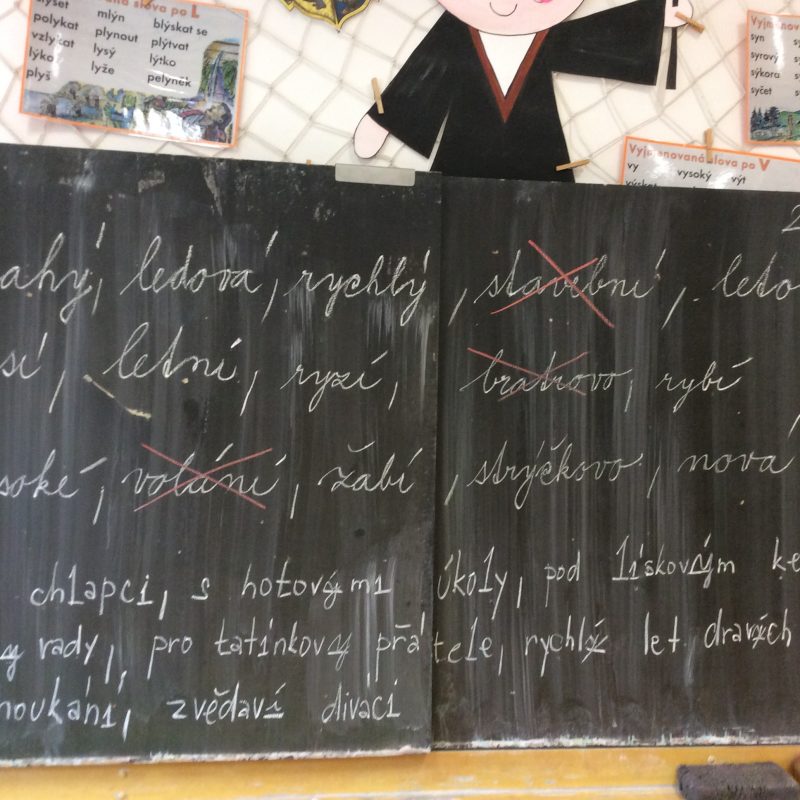 slova po L
slyšet mlýn blýskat se
polykat plynout plýtvat
vzlykat lysý lýtko
lýko lyže pelyněk
plyš
Vyjmenovaná slova po V
vy vysoký výt
syn
syrový
sýkora
syčet
ahý, ledová, rychlý, stavební, leto
sí, letní, ryzí, bratrovo, rybí
soké, volání, žabí, strýčkovo, nová
chlapci, s hotovými úkoly, pod lískovým ke
y rady, pro tatínkovy přátele, rychlý let dravých
houkání, zvědaví diváci